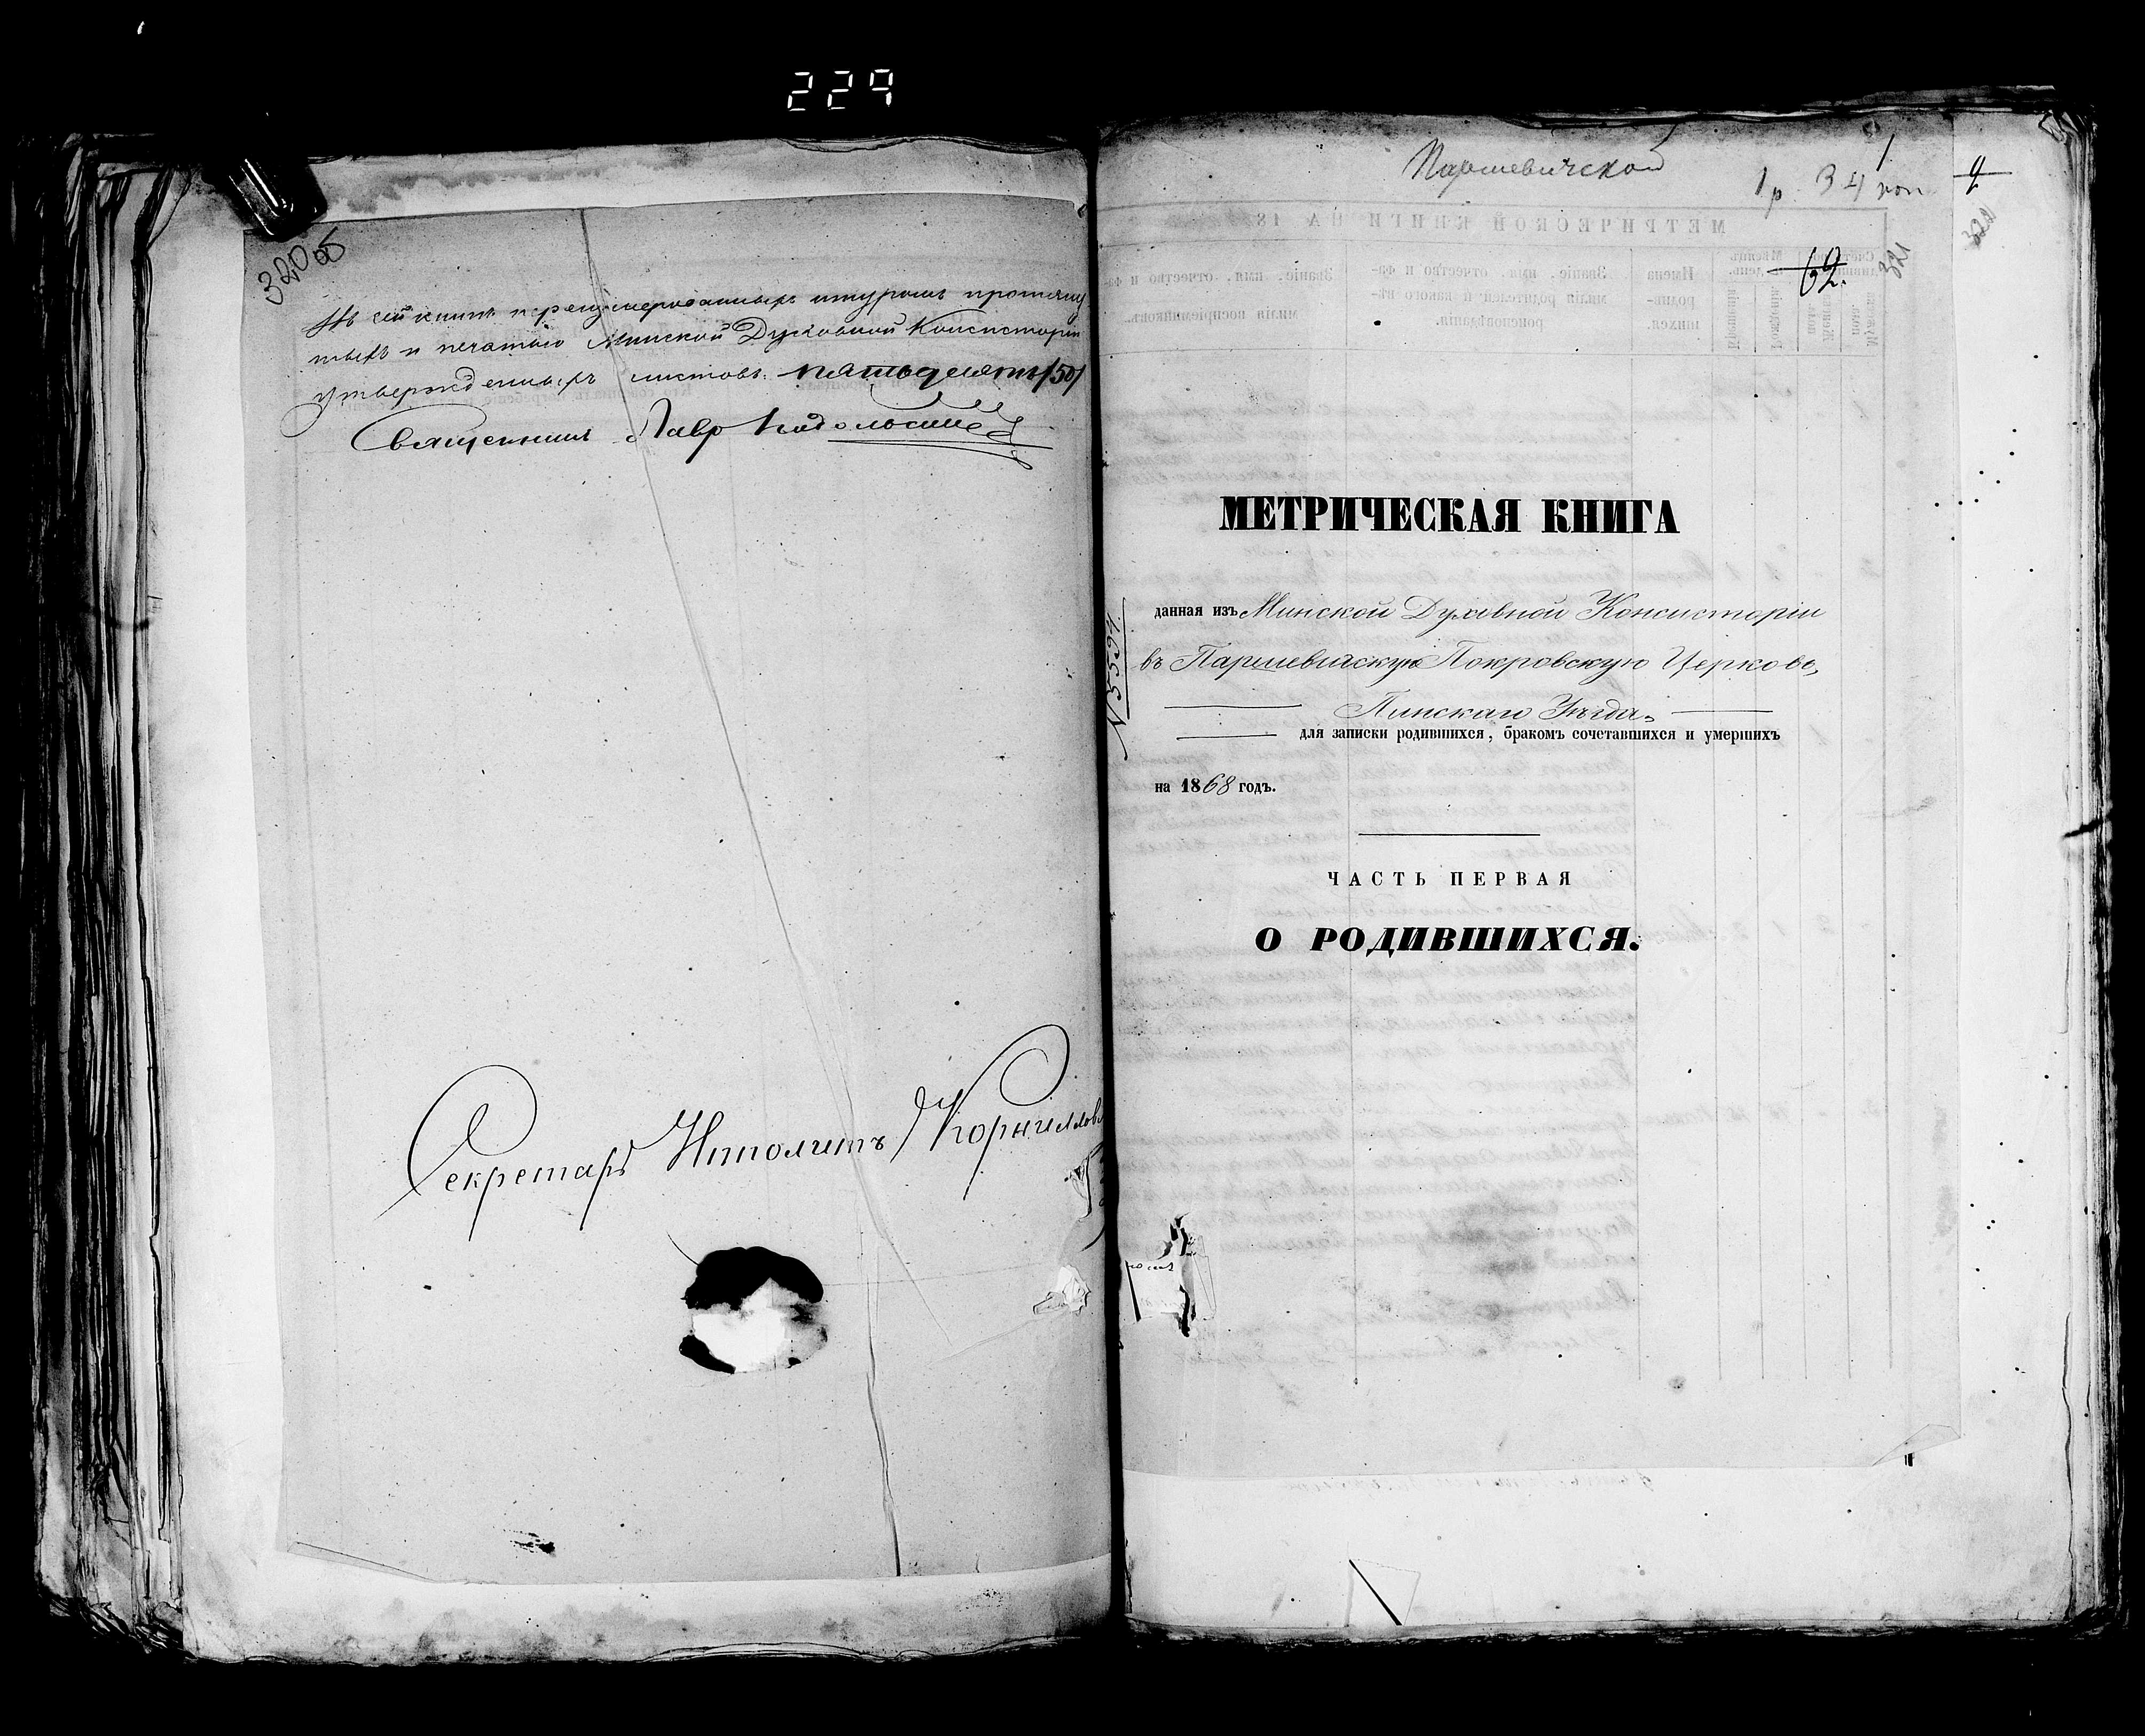 229
320 об
Въ сей книгѣ пренумерованныхъ шнуромъ протяну
тыхъ и печатью Минской Духовной Консисторіи
утвержденныхъ листовъ: пятьдесятъ /50/
Священникъ Лавръ
Секретарь Ипполитъ Корниллов
Паршевичской
1
1 р 34 коп
62.
321
№ 5594
МЕТРИЧЕСКАЯ КНИГА
данная изъ Минской Духовной Консисторіи
въ Паршевичскую Покровскую Церковь,
Пинскаго Уѣзда
для записки родившихся, бракомъ сочетавшихся и умершихъ
на 1868 годъ.
ЧАСТЬ ПЕРВАЯ
О РОДИВШИХСЯ.